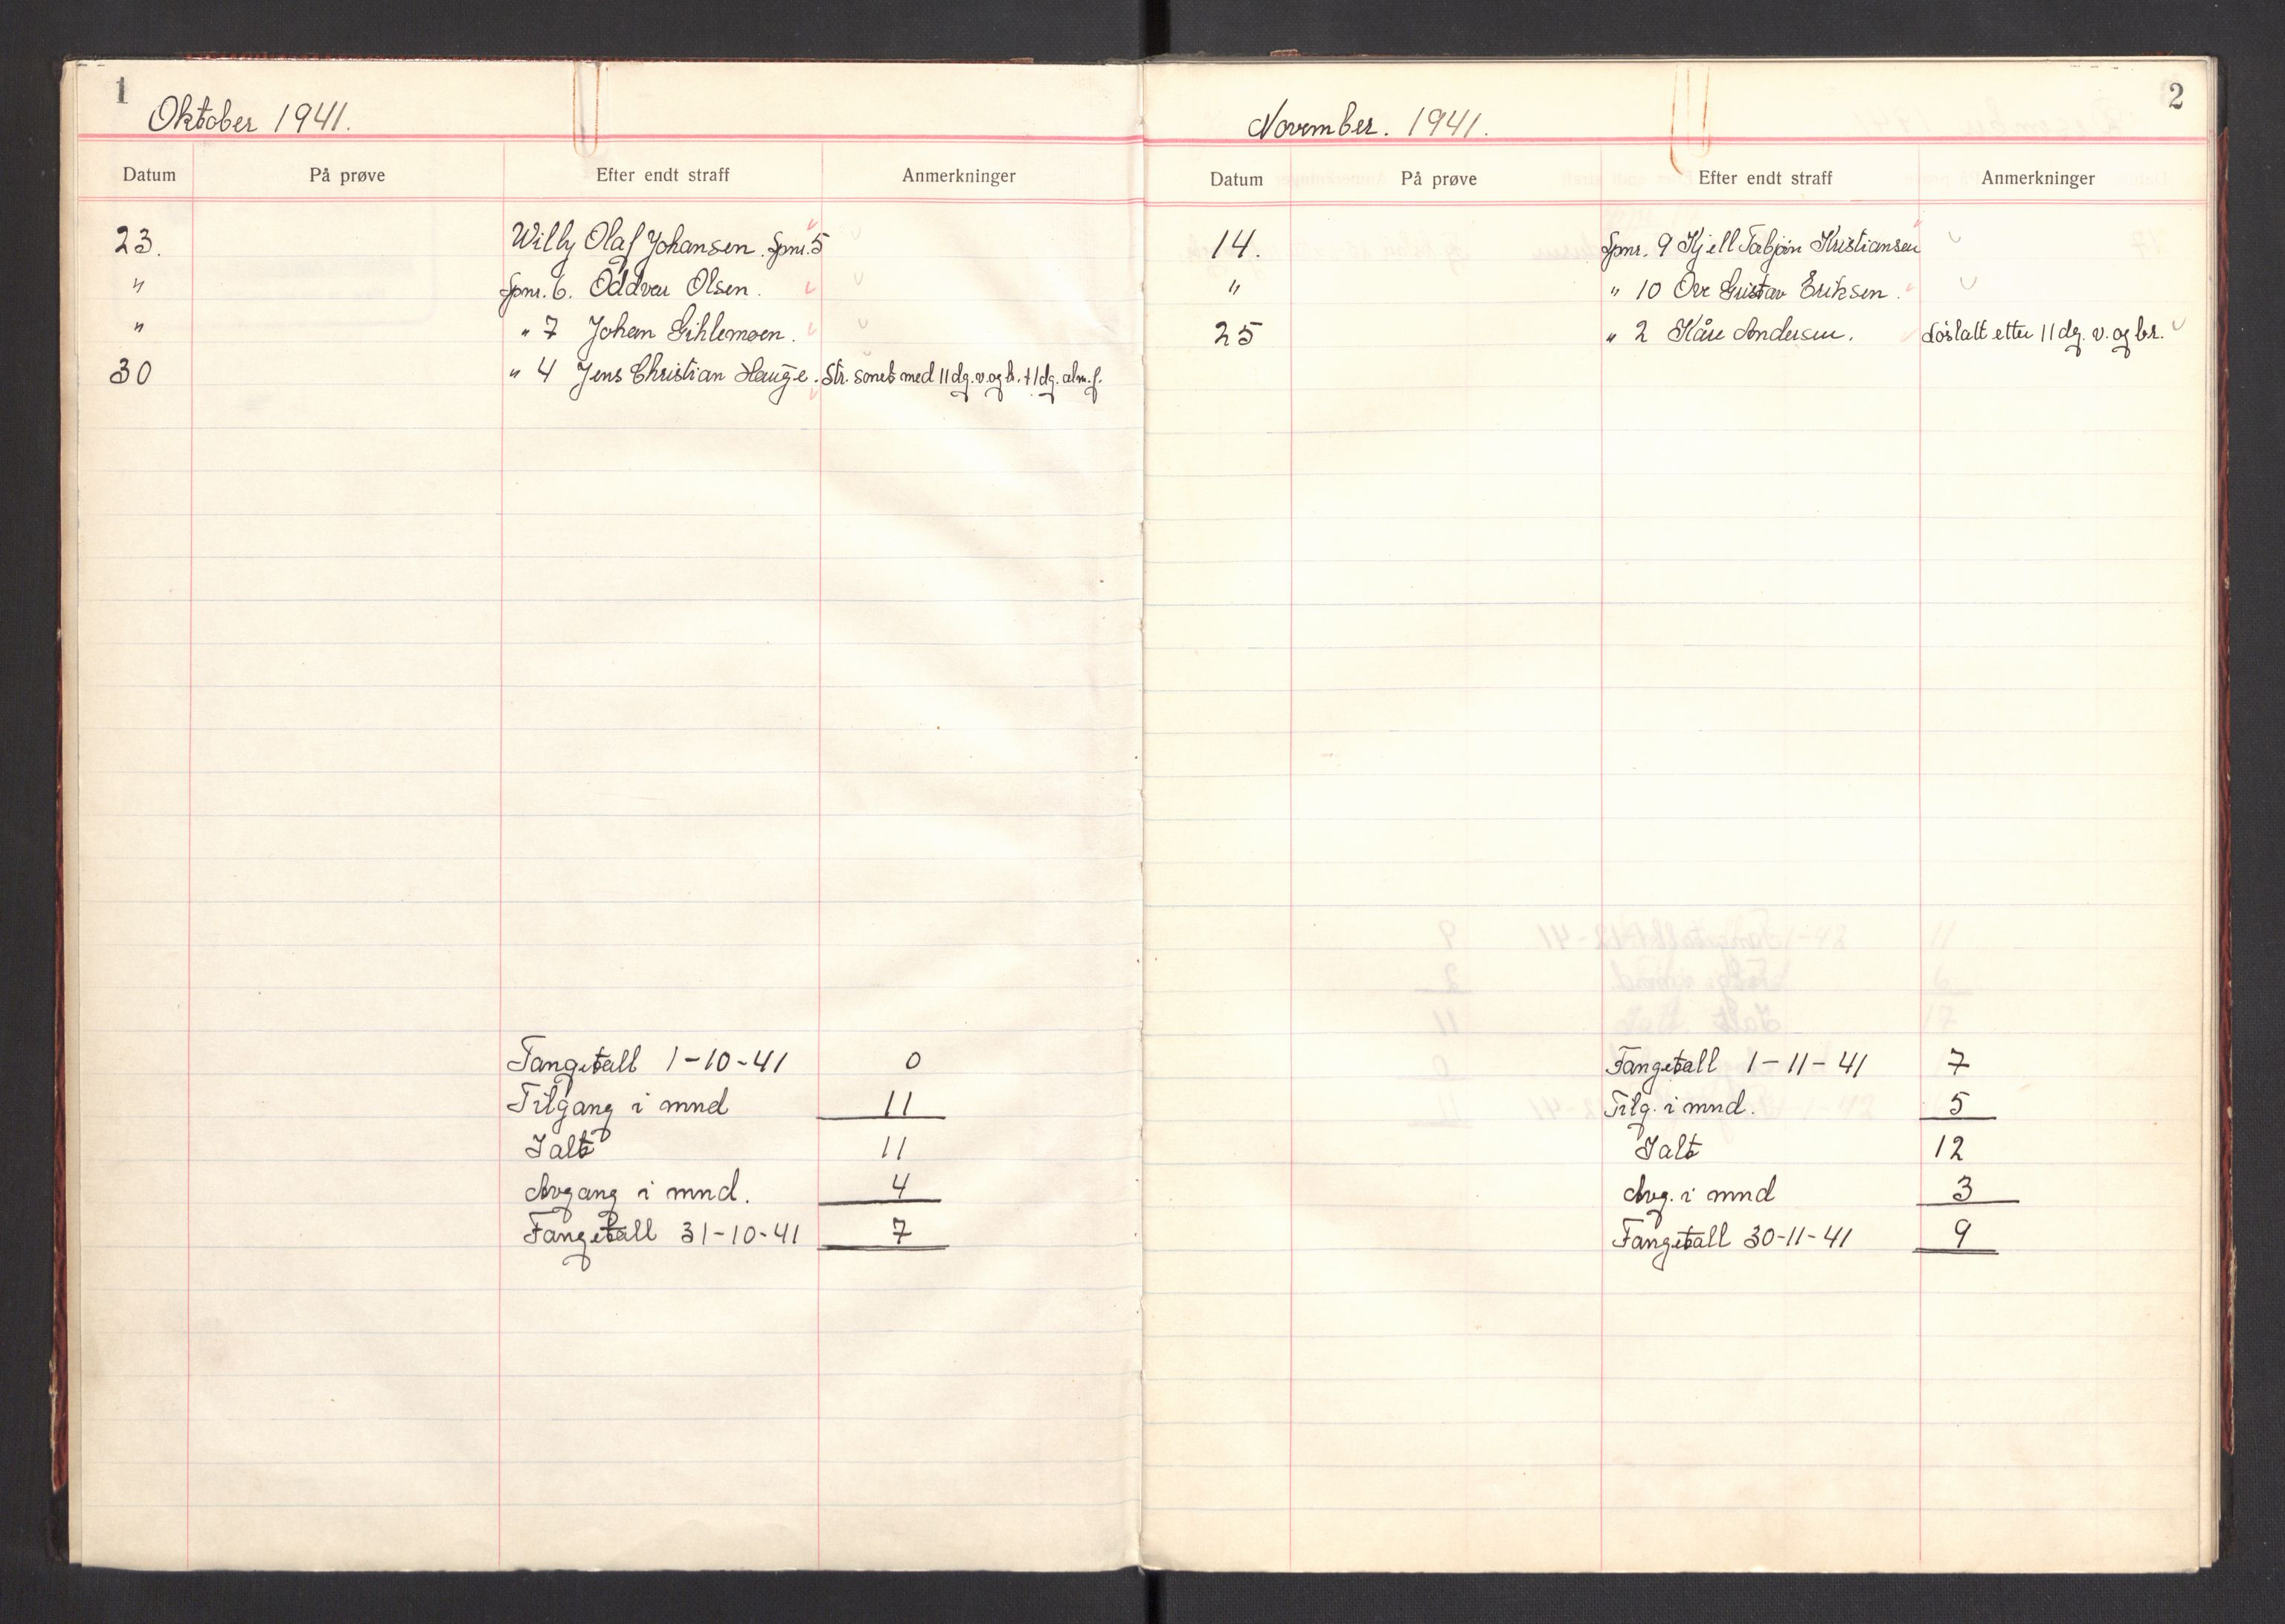 1
Oktober 1941.
Datum På prøve Efter endt straff Anmerkninger
23. Willy Olaf Johansen. Spnr. 5
" Spnr. 6. Oddvar Olsen.
" " 7 Johan Gihlemoen.
30 " 4 Jens Christian Hauge. Str. sonet med 11 dg. v. og br. + 1 dg. alm. f.
Fangetall 1-10-41 0
Tilgang i mnd 11
Ialt 11
Avgang i mnd. 4
Fangetall 31-10-41 7
2
November. 1941.
Datum På prøve Efter endt straff Anmerkninger
14. Spnr. 9 Kjell Torbjøn Kristiansen
" " 10 Ove Gustav Eriksen.
25 " 2 Kåre Andersen. Løslatt etter 11 dg. v. og br.
Fangetall 1-11-41 7
Tilg. i mnd. 5
Ialt 12
Avg. i mnd 3
Fangetall 30-11-41 9